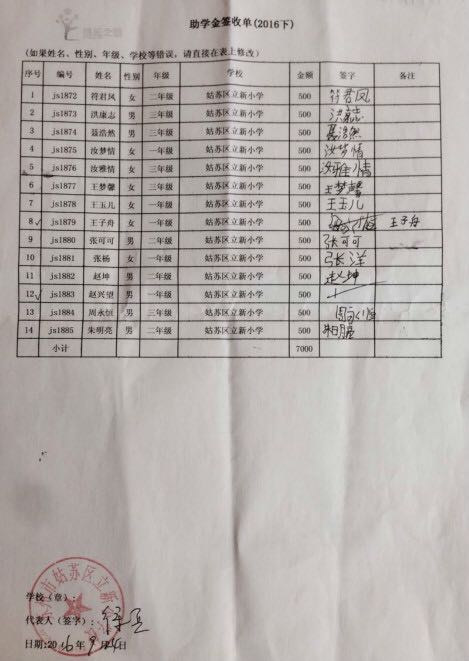 助学金签收单(2016下)
(如果姓名、性别、年级、学校等错误，请直接在表上修改)
序号 编号 姓名 性别 年级 学校 金额 签字 备注
1 js1872 符君凤 女 二年级 姑苏区立新小学 500 符君凤
2 js1873 洪康志 男 三年级 姑苏区立新小学 500
3 js1874 聂浩然 男 三年级 姑苏区立新小学 500 聂浩然
4 js1875 汝梦情 女 一年级 姑苏区立新小学 500 汝梦情
5 js1876 汝雅情 女 三年级 姑苏区立新小学 500 汝雅情
6 js1877 王梦馨 女 三年级 姑苏区立新小学 500 王梦馨
7 js1878 王玉儿 女 一年级 姑苏区立新小学 500 王玉儿
8 √ js1879 王子舟 女 一年级 姑苏区立新小学 500 王子舟
9 js1880 张可可 男 二年级 姑苏区立新小学 500 张可可
10 js1881 张杨 女 一年级 姑苏区立新小学 500 张洋
11 js1882 赵坤 男 二年级 姑苏区立新小学 500 赵坤
12 √ js1883 赵兴望 男 一年级 姑苏区立新小学 500
13 js1884 周永恒 男 三年级 姑苏区立新小学 500 周永恒
14 js1885 朱明亮 男 二年级 姑苏区立新小学 500
小计 7000
市姑苏区立新
学校（章）:
代表人（签字）:
日期:2016年9月24日